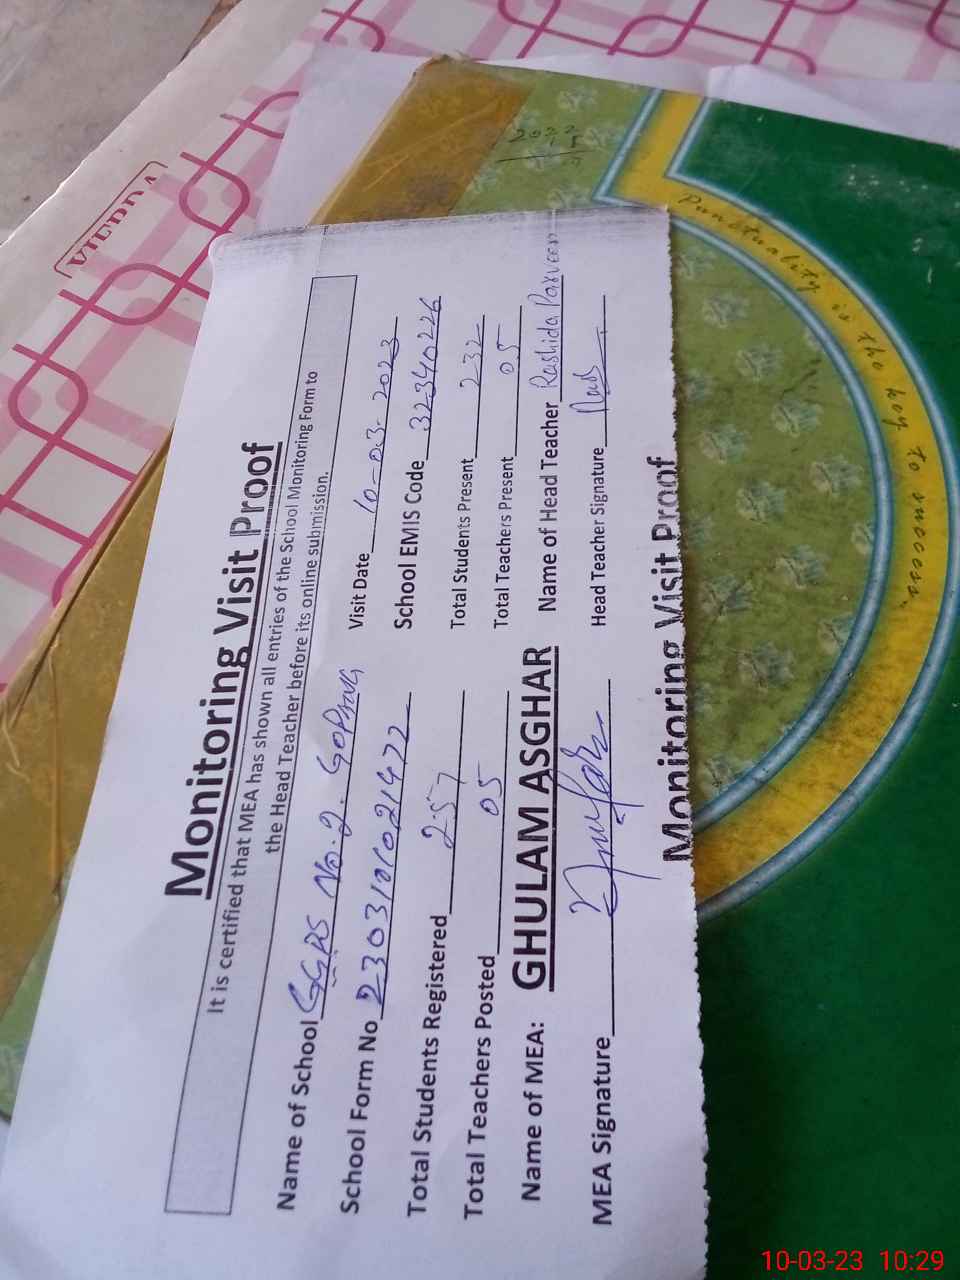 Monitoring Visit Proof
It is certified that MEA has shown all entries of the School Monitoring Form to
the Head Teacher before its online submission.
Name of School GGPS No.2. Gopang Visit Date 10-03-2023
School Form No 2303101021472 School EMIS Code 32340226
Total Students Registered 257 Total Students Present 232
Total Teachers Posted 05 Total Teachers Present 05
Name of MEA: GHULAM ASGHAR Name of Head Teacher Rashida Parveen
MEA Signature Head Teacher Signature
Monitoring Visit Proof
Punctuality is the key to success.
10-03-23 10:29